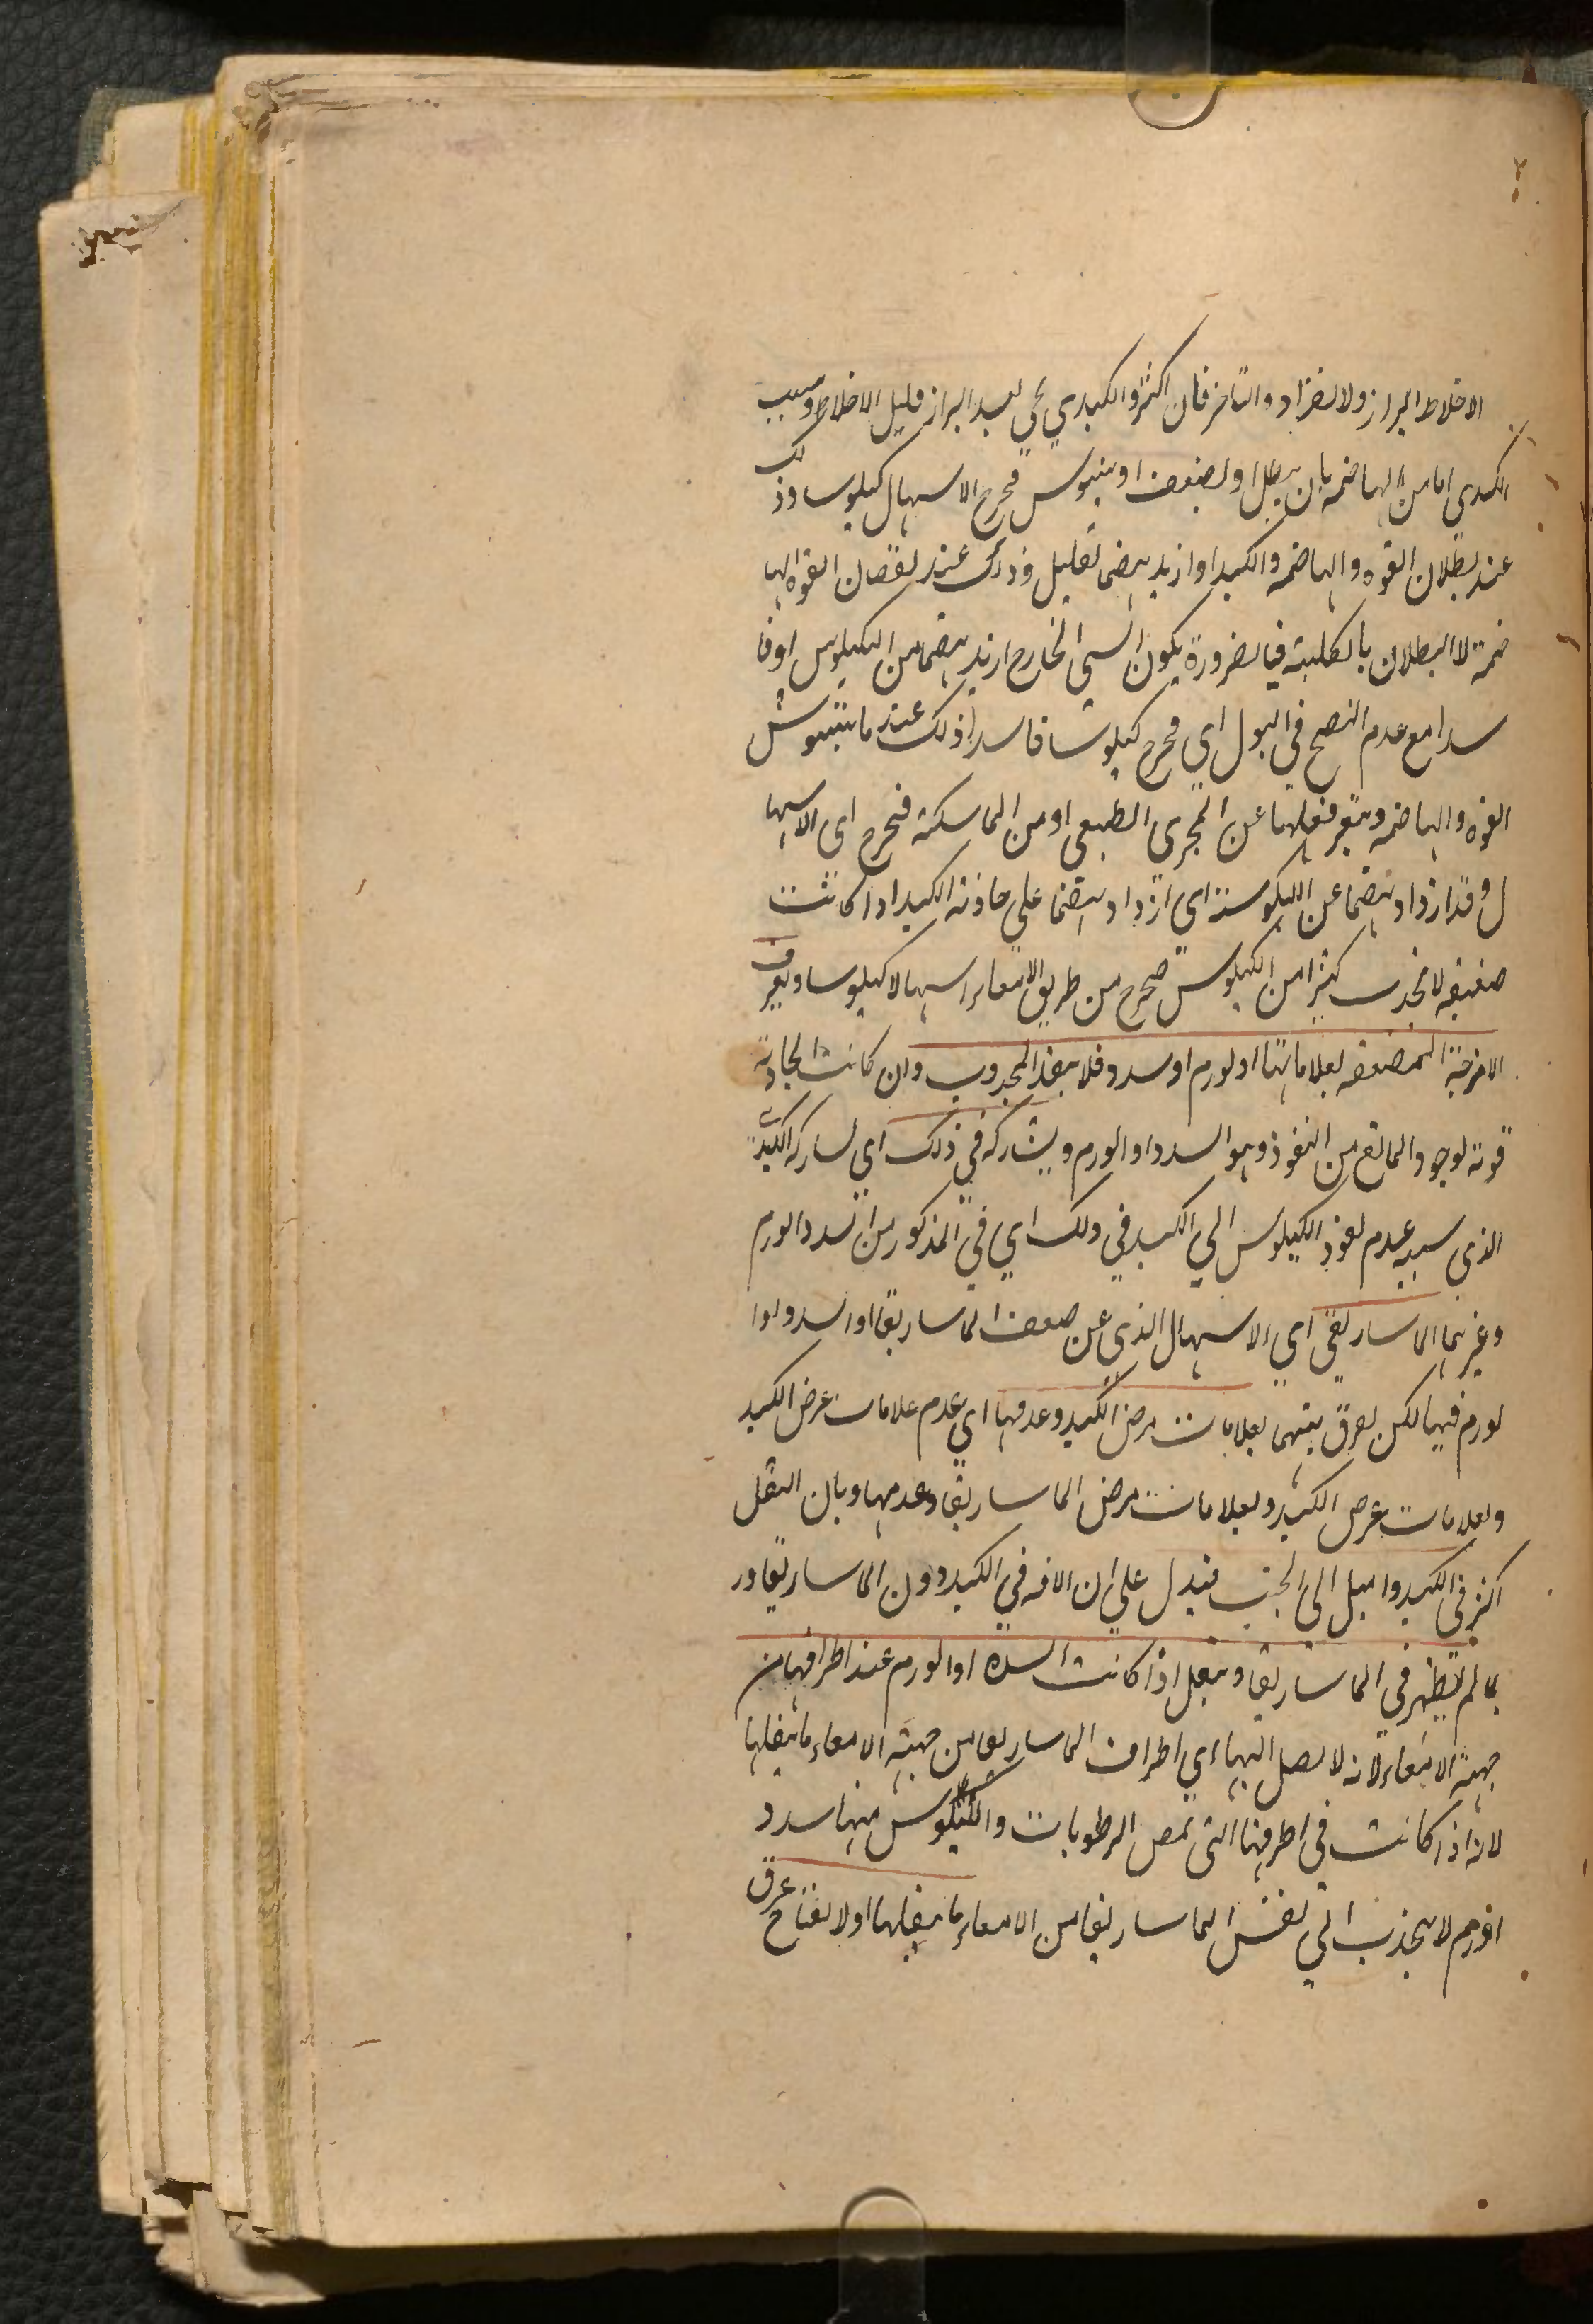 الاخلاط البراز ولانفراد والتاخر فان اكثر والكبدي يجي بعد البراز قليل الاخلاط وسبب
الكبدى اما من الهاضمه بان يبطل او يضعف او يتشوش فيخرج الاسهال كيلوسا وذلك
عند بطلان القوه والهاضمه والكبد او ازيد بهضما بقليل وذلك عند نقصان القوه الها
ضمة لا البطلان بالكلية فبالضرورة يكون الشي الخارج ازيد بهضما من الكيلوس او فا
سدا مع عدم النضج في البول اي فيخرج كيلوسا فاسدا ذلك عند ما يتشوش
القوه والهاضمه ويتغير فعلها عن المجرى الطبيعى او من الماسكة فيخرج اى الاسها
ل وقد ازداد بهضما عن الكيلوسية اى ازداد بهضما على جاذبة الكبد اذا كانت
ضعيفه لا تجذب كثيرا من الكيلوس فيخرج من طريق الامعاء اسهالا كيلوسا ويعرف
الامزجة المضعفه بعلاماتها او لورم او سدد فلا ينفذ المجذوب وان كانت الجاذبة
قوية لوجود المانع من النفوذ وهو السدد او الورم ويشاركه في ذلك اي يشاركه الكبدي
الذي سببه عدم نفوذ الكيلوس الي الكبد في ذلك اي في المذكور من السدد الورم
وغيرهما الماساريقي اي الاسهال الذي عن ضعف الماساريقا او السدد او ا
لورم فيها لكن يفرق بينهما بعلامات مرض الكبد وعدمها اي عدم علامات مرض الكبد
وبعلامات مرض الكبد وبعلامات مرض الماساريقا وعدمها وبان الثقل
اكثر في الكبد واميل الى الجنب فيدل علي ان الافه في الكبد دون الماساريقا ور
بما لم يظهر في الماساريقا وثقل اذا كانت السده او الورم عند اطرافها من
جهة الامعاء لانه لا يصل اليها اي اطراف الماساريقا من جهة الامعاء ما يثقلها
لانه اذا كانت في اطرافها التى تمص الرطوبات والكيلوس منها سدد
اورم لا ينجذب الي نفس الماساريقا من الامعاء ما يثقلها او لانفتاح عرق